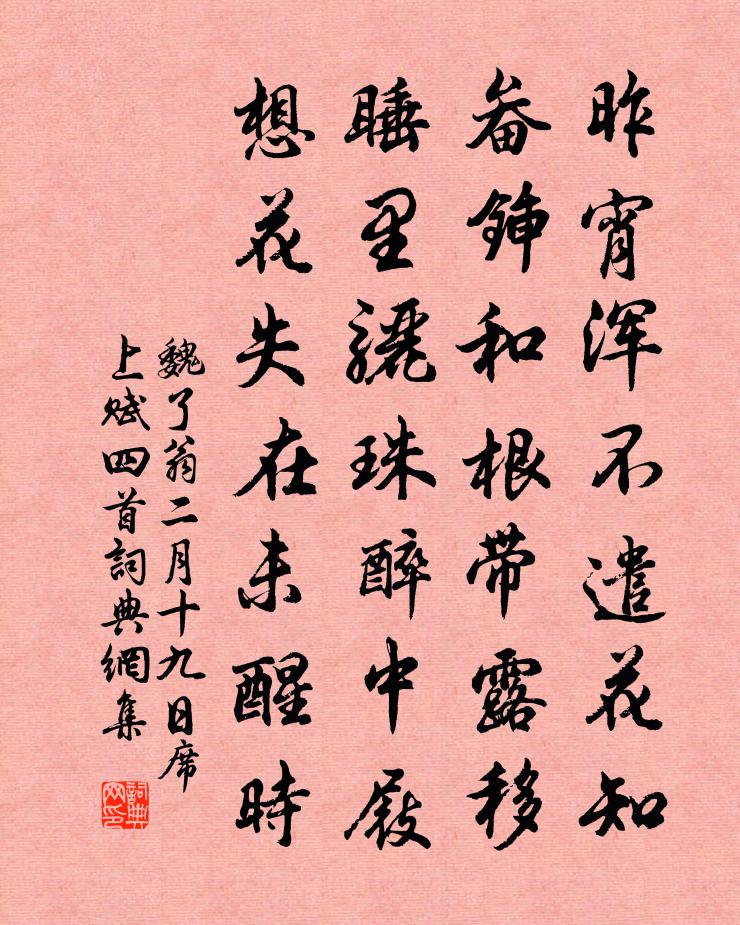 昨宵浑不遣花知
畚鍤和根带露移
睡里驪珠醉中屐
想花失在未醒時
魏了翁二月十九日席
上赋四首詞典網集
詞典
网印